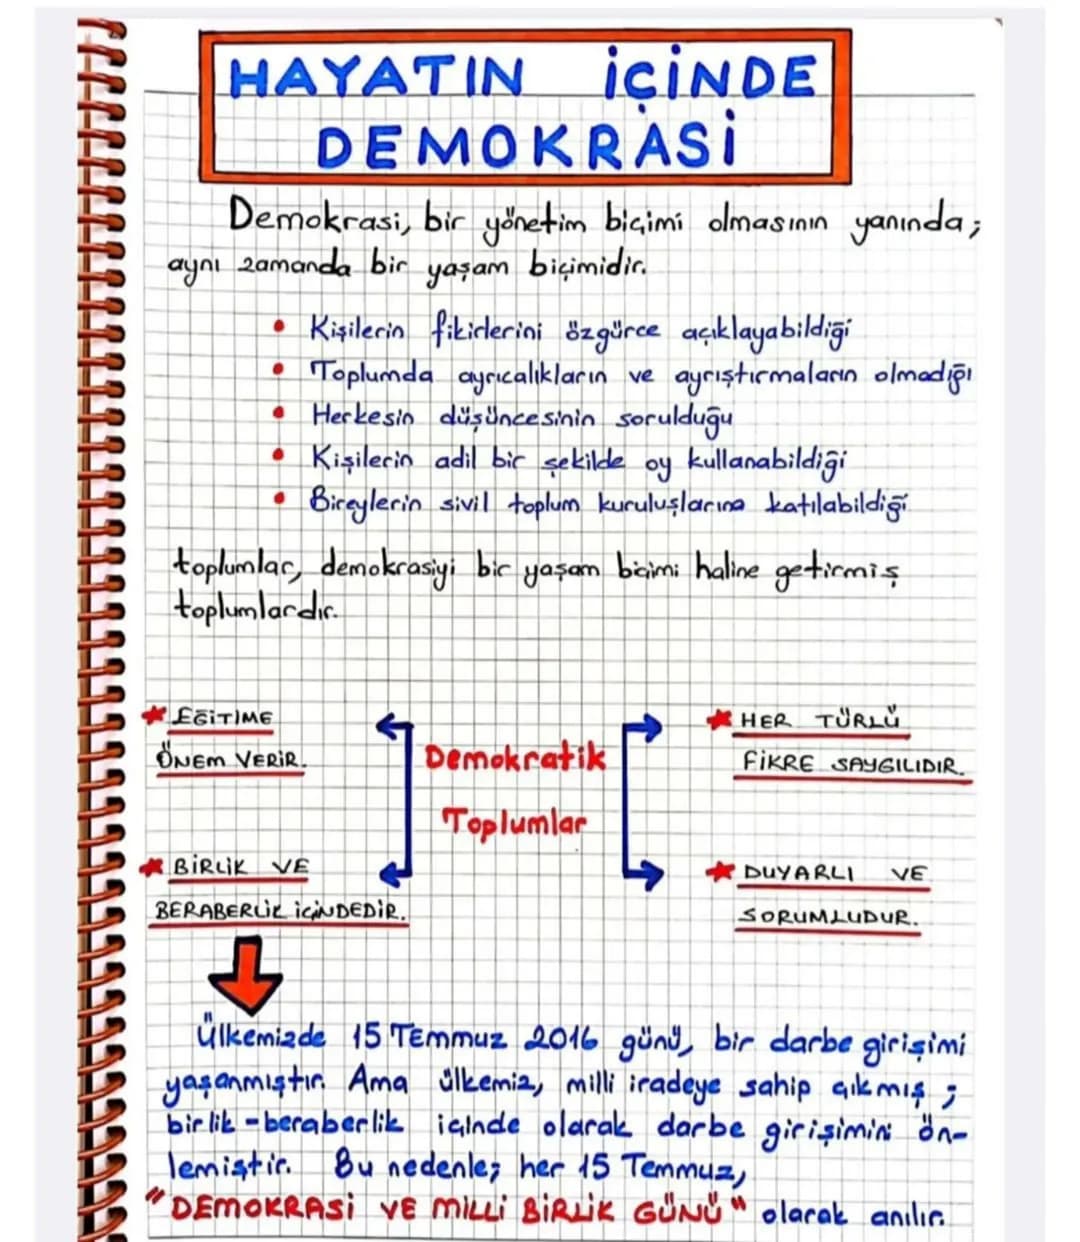 HAYATIN İÇİNDE
DEMOKRASİ
Demokrasi, bir yönetim biçimi olmasının yanında;
aynı zamanda bir yaşam biçimidir.
• Kişilerin fikirlerini özgürce açıklayabildiği
• Toplumda ayrıcalıkların ve ayrıştırmaların olmadığı
• Herkesin düşüncesinin sorulduğu
• Kişilerin adil bir şekilde oy kullanabildiği
• Bireylerin sivil toplum kuruluşlarına katılabildiği
toplumlar, demokrasiyi bir yaşam biçimi haline getirmiş
toplumlardır.
EĞİTİME
ÖNEM VERİR.
BİRLİK VE
BERABERLİK İÇİNDEDİR.
Demokratik
Toplumlar
HER TÜRLÜ
FİKRE SAYGILIDIR.
DUYARLI VE
SORUMLUDUR.
Ülkemizde 15 TEMMUZ 2016 günü, bir darbe girişimi
yaşanmıştır. Ama ülkemiz, milli iradeye sahip çıkmış ;
birlik-beraberlik içinde olarak darbe girişimini ön-
lemiştir. Bu nedenle; her 15 Temmuz,
"DEMOKRASİ VE MİLLİ BİRLİK GÜNÜ" olarak anılır.